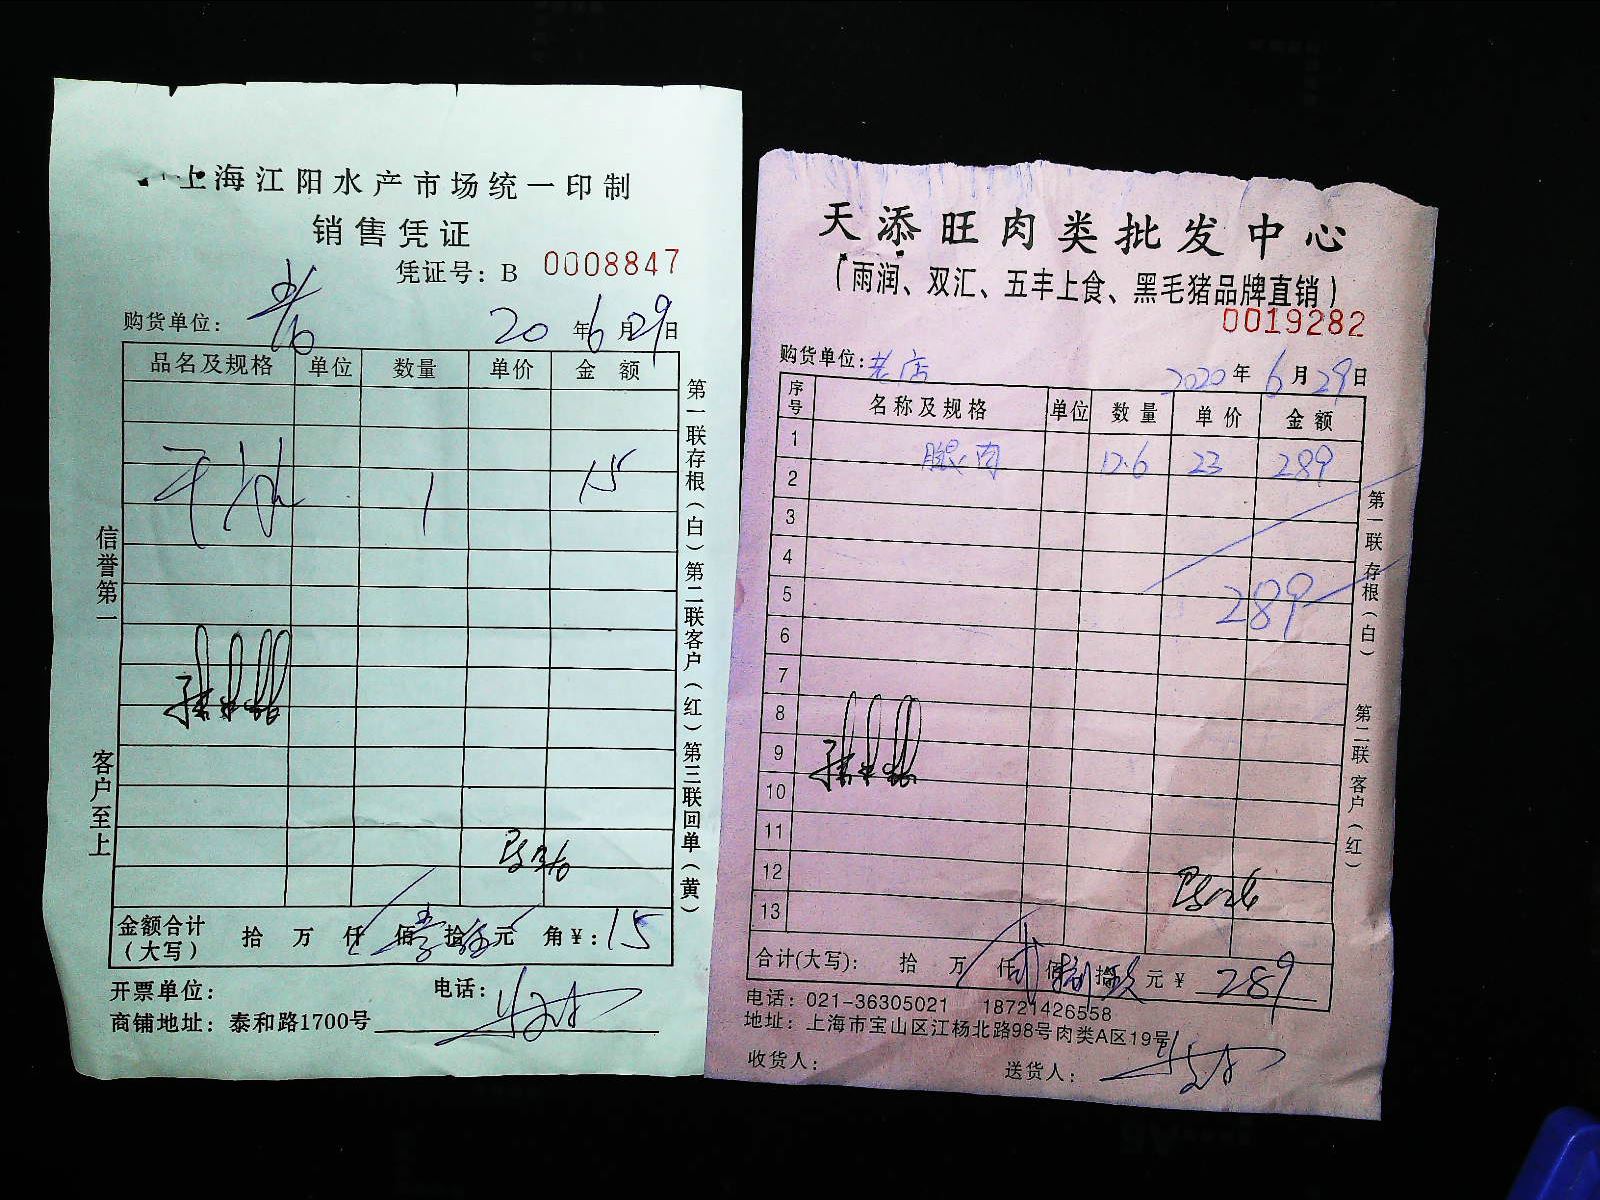 上海江阳水产市场统一印制
销售凭证
凭证号：B 0008847
购货单位：
20 年 6 月 29 日
品名及规格 单位 数量 单价 金额
1 15
信誉第一
客户至上
第一联存根（白）第二联客户（红）第三联回单（黄）
金额合计（大写） 拾 万 仟 佰 壹拾 伍元 角￥：15
开票单位： 电话：
商铺地址：泰和路1700号
天添旺肉类批发中心
（雨润、双汇、五丰上食、黑毛猪品牌直销）
0019282
购货单位：老店
2020 年 6 月 29 日
序号 名称及规格 单位 数量 单价 金额
1 腿肉 12.6 23 289
2
3
4
5 289
6
7
8
9
10
11
12
13
第一联 存根（白） 第二联 客户（红）
合计(大写)： 拾 万 仟 佰 拾 元￥ 289
电话：021-36305021 18721426558
地址：上海市宝山区江杨北路98号肉类A区19号
收货人： 送货人：